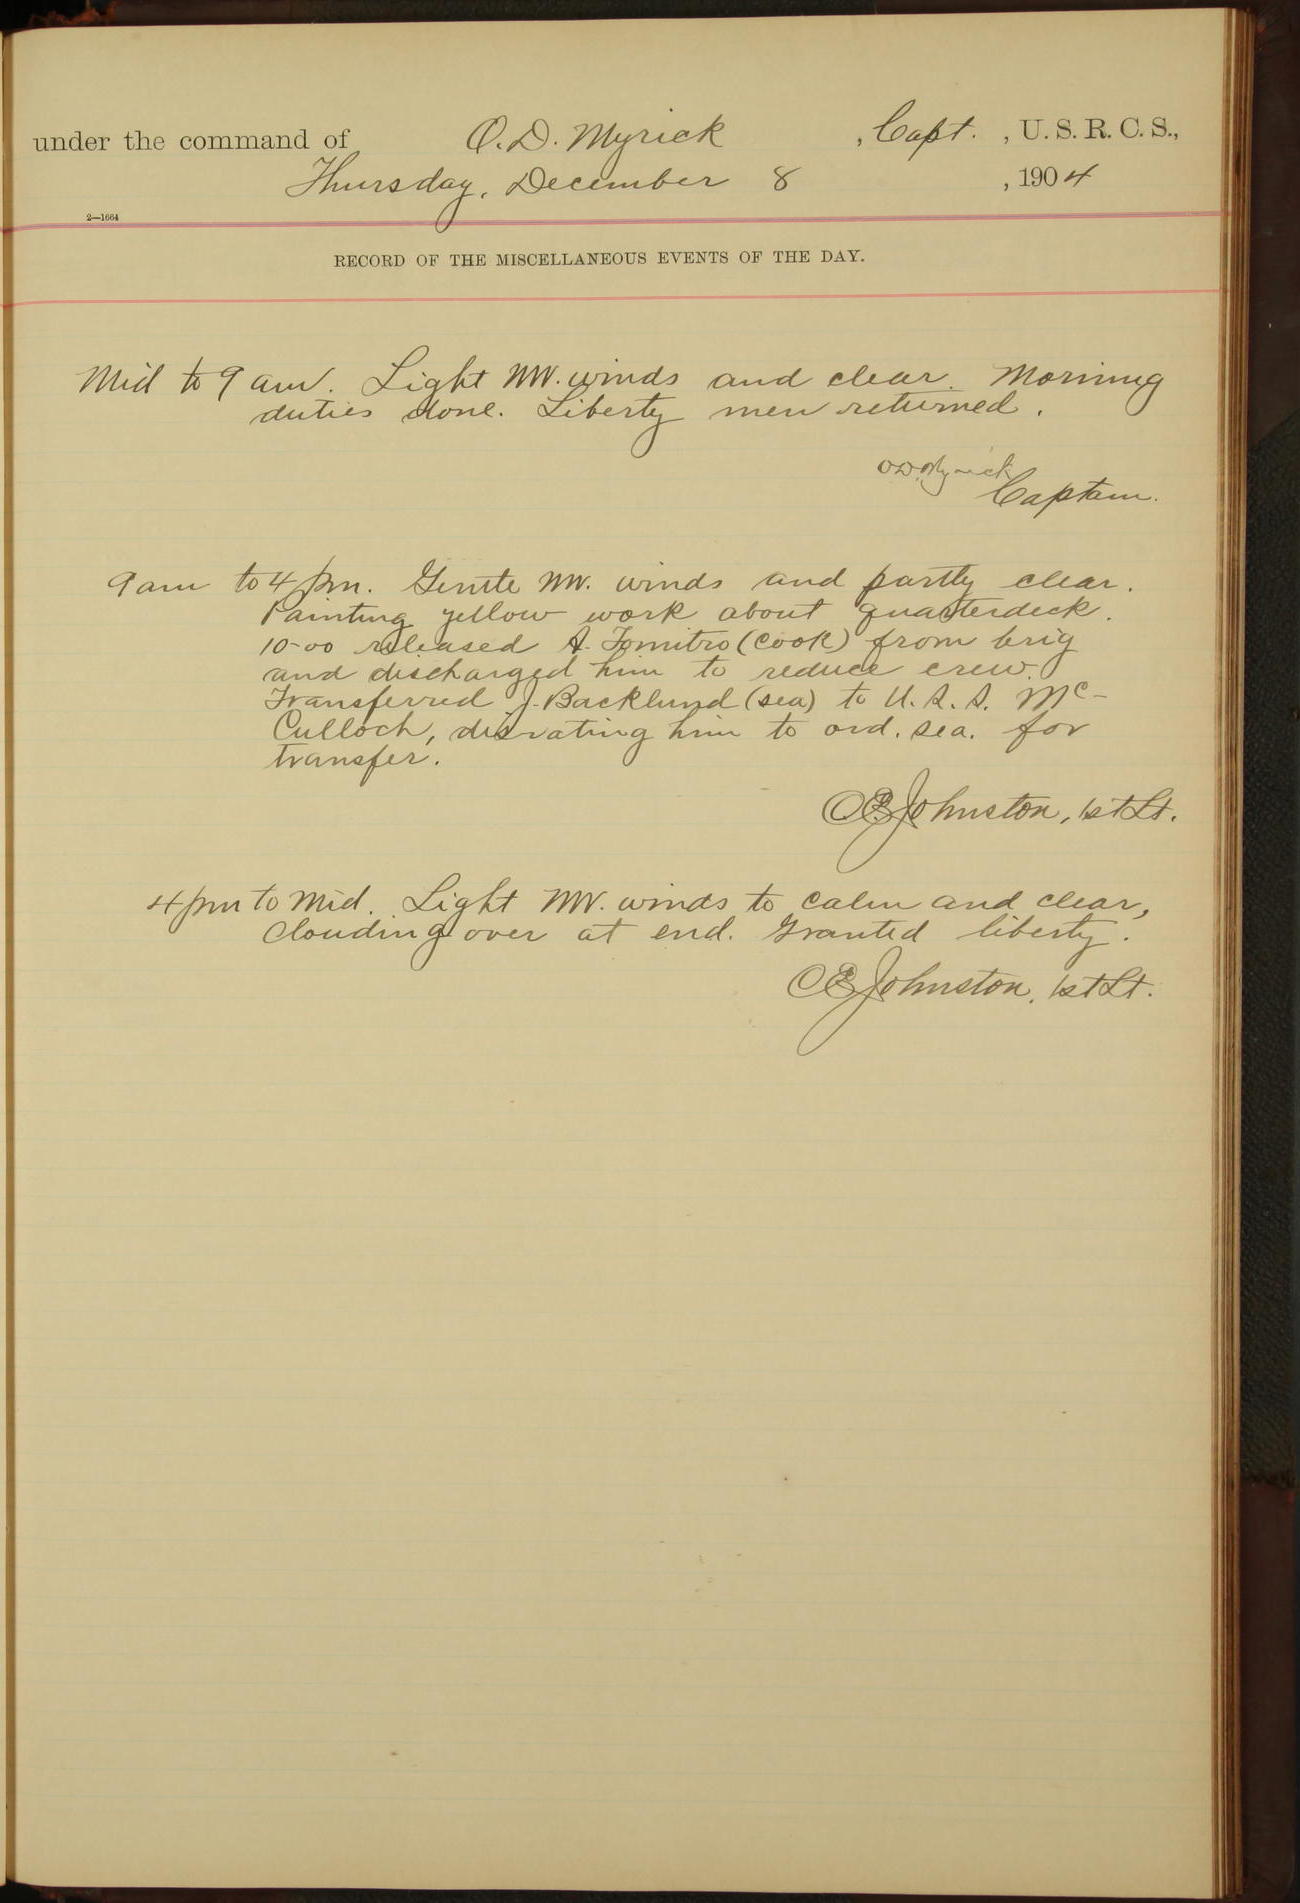 under the command of O. D. Myrick, Capt., U. S. R. C. S.,
Thursday, December 8, 1904
2—1664
RECORD OF THE MISCELLANEOUS EVENTS OF THE DAY.
Mid to 9 am. Light NW. winds and clear. Morning
duties done. Liberty men returned.
O D Myrick
Captain.
9 am to 4 pm. Gentle NW. winds and partly clear.
Painting yellow work about quarterdeck.
10-00 released A. Tomitro (cook) from brig
and discharged him to reduce crew.
Transferred J. Backlund (sea) to U. S. S. Mc-
Culloch, disrating him to ord. sea. for
transfer.
C E Johnston, 1st Lt.
4 pm to Mid. Light NW. winds to calm and clear,
clouding over at end. Granted liberty.
C E Johnston, 1st Lt.